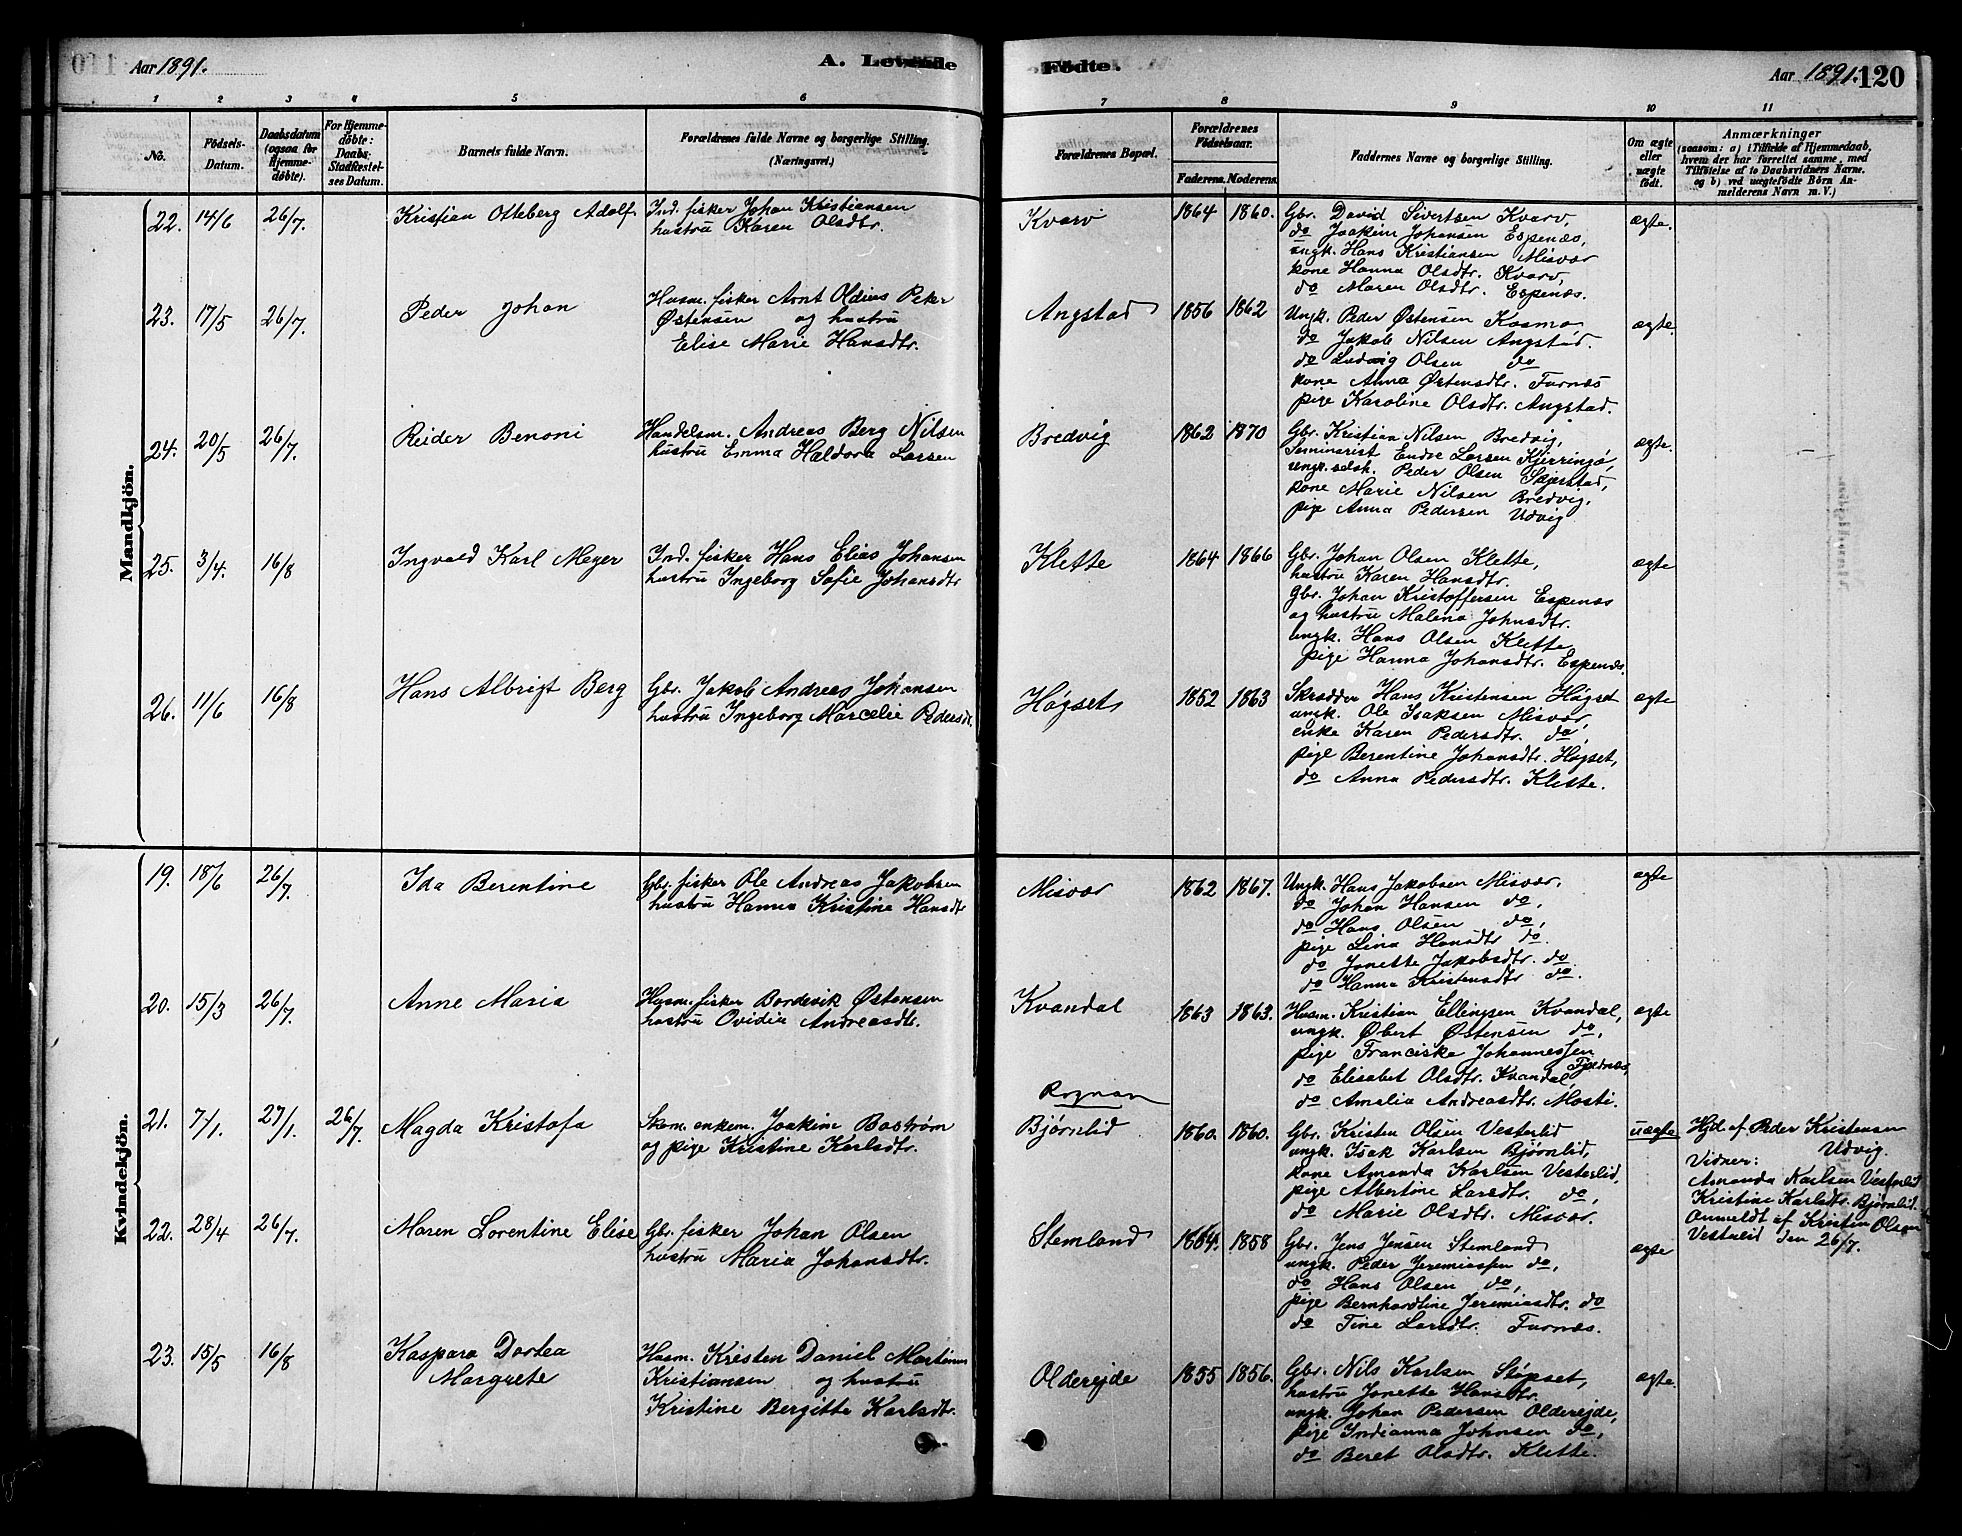 Aar 1891.
A. Levende
Fødte.
Aar 1891.
120
1 2 3 4 5 6 7 8 9 10 11
No.
Fødsels-
Datum.
Daabsdatum
(ogsaa for
Hjemme-
døbte).
For Hjemme-
døbte:
Daabs-
Stadfæstel-
ses Datum.
Barnets fulde Navn.
Forældrenes fulde Navne og borgerlige Stilling.
(Næringsvei.)
Forældrenes Bopæl.
Forældrenes
Fødselsaar.
Faderens. Moderens.
Faddernes Navne og borgerlige Stilling.
Om ægte
eller
uægte
født.
Anmærkninger
(saasom: a) i Tilfælde af Hjemmedaab,
hvem der har forrettet samme, med
Tilføielse af to Daabsvidners Navne.
og b) ved uægtefødte Børn An-
melderens Navn m. V.)
Mandkjön.
22. 14/6 26/7. Kristian Otteberg Adolf
Ind. fisker Johan Kristiansen
hustru Karen Olsdtr.
Kvarv 1864 1860.
Gbr. David Sivertsen Kvarv,
do Joakim Johansen Espenæs,
ungk. Hans Kristiansen Misvær
kone Hanna Olsdtr. Kvarv,
do Maren Olsdtr. Espenæs.
ægte.
23. 17/5 26/7. Peder Johan
Husm. fisker Arnt Oldius Peter
Østensen og hustru
Elise Marie Hansdtr.
Angstad 1856 1862
Ungk. Peder Østensen Kosmo
do Jakob Nilsen Angstad.
do Ludvig Olsen do
kone Anna Østensdtr. Furnæs
pige Karoline Olsdtr. Angstad.
ægte.
24. 20/5 26/7. Reider Benoni
Handelsm. Andreas Berg Nilsen
hustru Emma Haldora Larsen
Bredvig 1862 1870
Gbr. Kristian Nilsen Bredvig,
Seminarist Endre Larsen Kjerringø,
ungk. selsk. Peder Olsen Skjerstad,
kone Marie Nilsen Bredvig,
pige Anna Pedersen Udvig
ægte.
25. 3/4. 16/8 Ingvald Karl Meyer
Ind. fisker Hans Elias Johansen
hustru Ingeborg Sofie Johansdtr
Klette 1864 1866
Gbr. Johan Olsen Klette,
hustru Karen Hansdtr.
Gbr. Johan Kristoffersen Espenæs
og hustru Malena Johnsdtr.
ungk. Hans Olsen Klette
pige Hanna Johansdtr. Espenæs.
ægte
26. 11/6 16/8 Hans Albrigt Berg
Gbr. Jakob Andreas Johansen
hustru Ingeborg Marcelie Pedersdt.
Høgset 1852 1863
Skrædder Hans Kristensen Høgset
ungk. Ole Isaksen Misvær,
enke Karen Pedersdtr. do,
pige Berentine Johansdtr. Høgset,
do Anna Pedersdtr. Klette.
ægte
Kvindekjön.
19. 18/6 26/7. Ida Berentine
Gbr. fisker Ole Andreas Jakobsen
hustru Hanna Kristine Hansdtr
Misvær 1862 1867.
Ungk. Hans Jakobsen Misvær,
do Johan Hansen do,
do Hans Olsen do,
pige Lina Hansdtr do.
do Jonette Jakobsdtr. do
do Hanna Kristensdtr do.
ægte
20. 15/3 26/7. Anne Maria
Husm. fisker Bordevik Østensen
hustru Ovidia Andreasdtr.
Kvandal 1863 1863.
Husm. Kristian Ellingsen Kvandal,
ungk. Øbert Østensen do,
pige Franciska Johannessen
Fjeldnæs,
do Elisabet Olsdtr. Kvandal,
do Amalia Andreasdtr. Mosti.
ægte
21. 7/1. 27/1. 26/7. Magda Kristofa
Skom. enkem. Joakim Bostrøm
og pige Kristine Karlsdtr.
Rognan
Bjørnlid 1860. 1860.
Gbr. Kristen Olsen Vesterlid
ungk. Isak Karlsen Bjørnlid,
kone Amanda Karlsen Vesterlid,
pige Albertine Larsdtr. do,
do Marie Olsdtr. Misvær.
uægte
Hjd af. Peder Kristensen
Udvig.
Vidner:
Amanda Karlsen Vesterlid
Kristine Karlsdtr. Bjørnlid.
Anmeldt af Kristen Olsen
Vesterlid den 26/7.
22. 28/4 26/7. Maren Lorentine Elise
Gbr. fisker Johan Olsen
hustru Maria Johansdtr.
Stemland 1864. 1858
Gbr. Jens Jensen Stemland
ungk. Peder Jeremiassen do,
do Hans Olsen do,
pige Bernhardtine Jeremiasdtr. do
do Tine Larsdtr. Furnæs.
ægte
23. 15/5 16/8 Kaspara Dortea
Margrete
Husm. Kristen Daniel Martinus
Kristiansen og hustru
Kristine Bergitte Karlsdtr.
Oldereide 1855 1856.
Gbr. Nils Karlsen Støpset,
hustru Jonette Hansdtr.
ungk. Johan Pedersen Oldereide,
pige Indianna Johnsen do,
do Beret Olsdtr. Klette.
ægte.